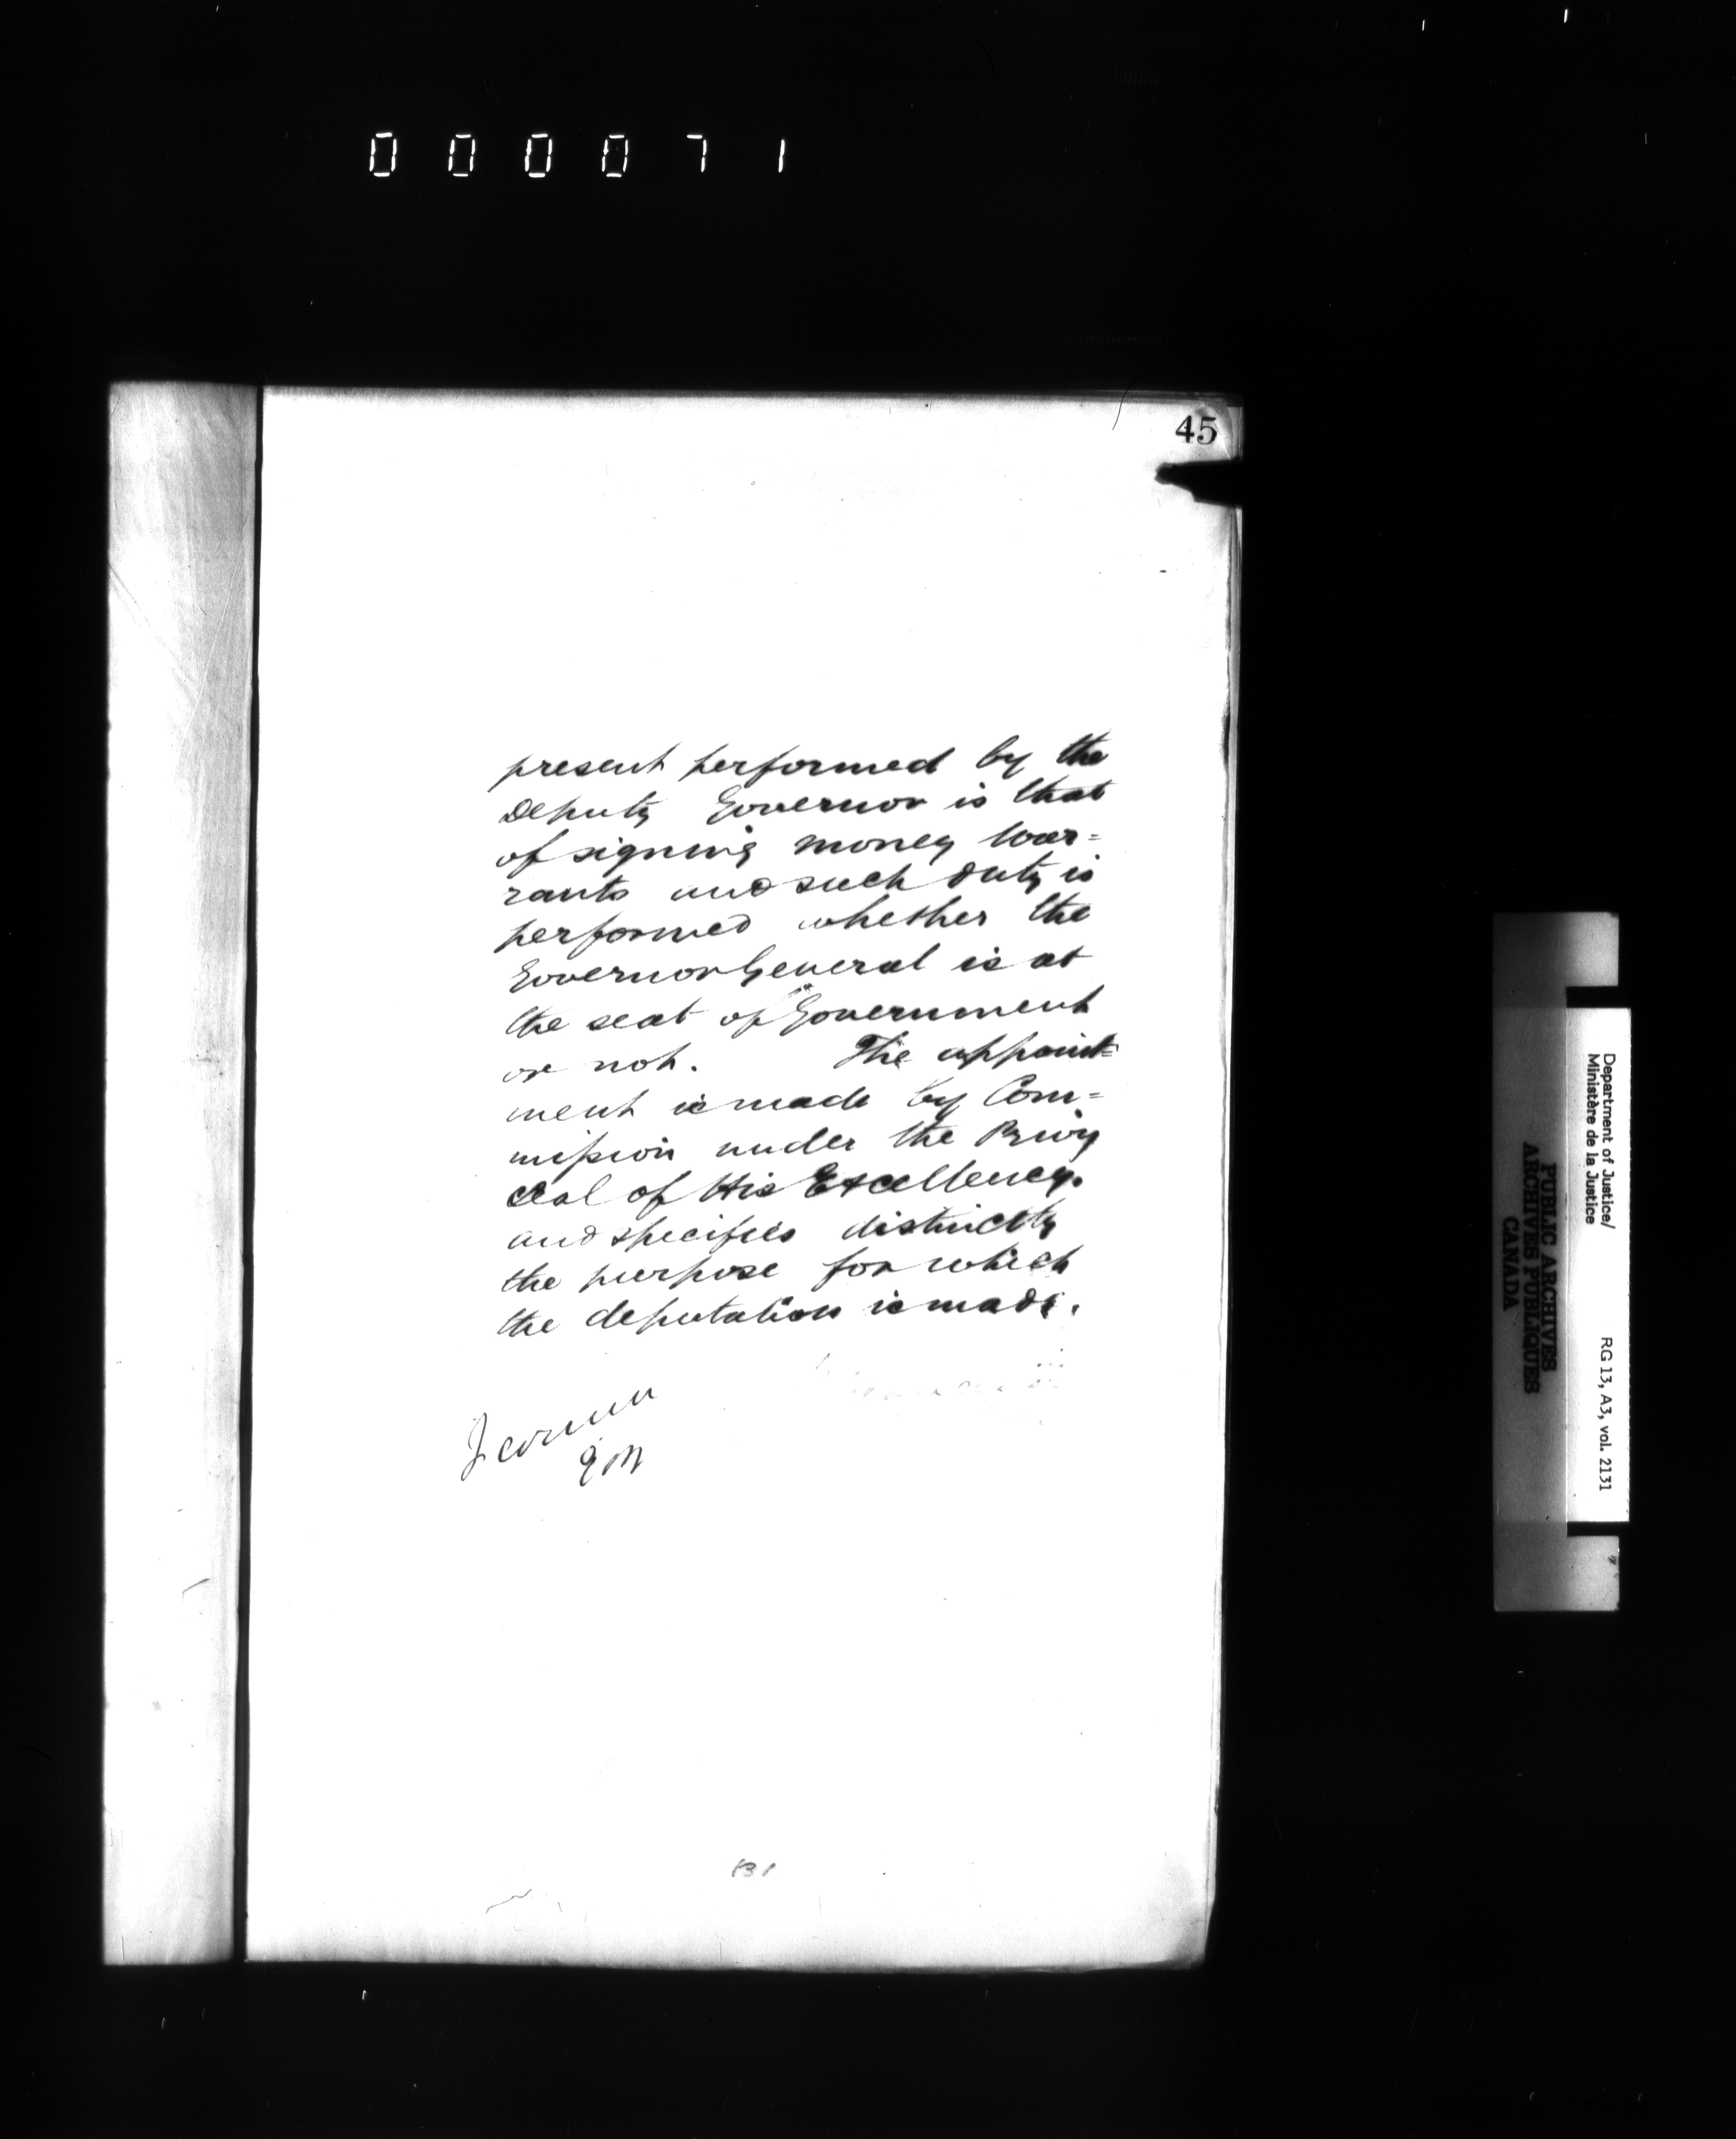 000071
45
present performed by the
Deputy Governor is that
of signing money War=
rants and such duty is
performed whether the
Governor General is at
the seat of Government
or not. The appoint=
ment is made by Com=
mission under the Privy
Seal of His Excellency.
and specifies distinctly
the purpose for which
the deputation is made.
I concur
131
Department of Justice/
Ministère de la Justice
RG 13, A3, vol. 2131
PUBLIC ARCHIVES
ARCHIVES PUBLIQUES
CANADA